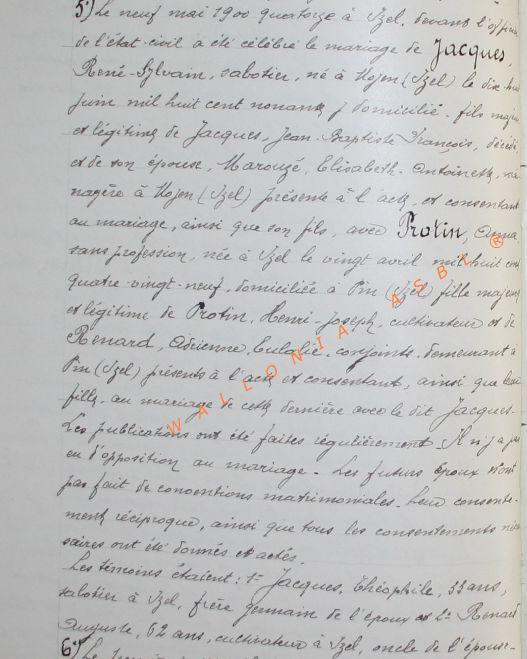 5°) Le neuf mai 1900 quatorze à Izel, devant l'offici
de l'état-civil a été célébré le mariage de Jacques,
René-Sylvain, sabotier, né à Mojen (Izel) le dix-hui
juin mil huit cent nonante, y domicilié, fils majeu
et légitime de Jacques, Jean-Baptiste François, décédé
et de son épouse, Marouzé, Elisabeth-Antoinette, mé-
nagère à Mojen (Izel) présente à l'acte, et consentant
au mariage, ainsi que son fils, avec Protin, Anna
sans profession, née à Izel le vingt avril mil huit cent
quatre-vingt-neuf, domiciliée à Pin (Izel) fille majeure
et légitime de Protin, Henri-Joseph, cultivateur et de
Renard, Adrienne, Eulalie, conjoints, demeurant à
Pin (Izel) présents à l'acte et consentant, ainsi que leur
fille, au mariage de cette dernière avec le dit Jacques-
Les publications ont été faites régulièrement. Il n'y a pas
eu d'opposition au mariage - Les futurs époux n'ont
pas fait de conventions matrimoniales. Leur consente-
ment réciproque, ainsi que tous les consentements néces
saires ont été donnés et actés.
Les témoins étaient: 1° Jacques, Théophile, 33 ans,
sabotier à Izel, frère germain de l'époux et 2° Renard
Auguste, 62 ans, cultivateur à Izel, oncle de l'épouse-
6°) Le
WALLONIA ASBL ®